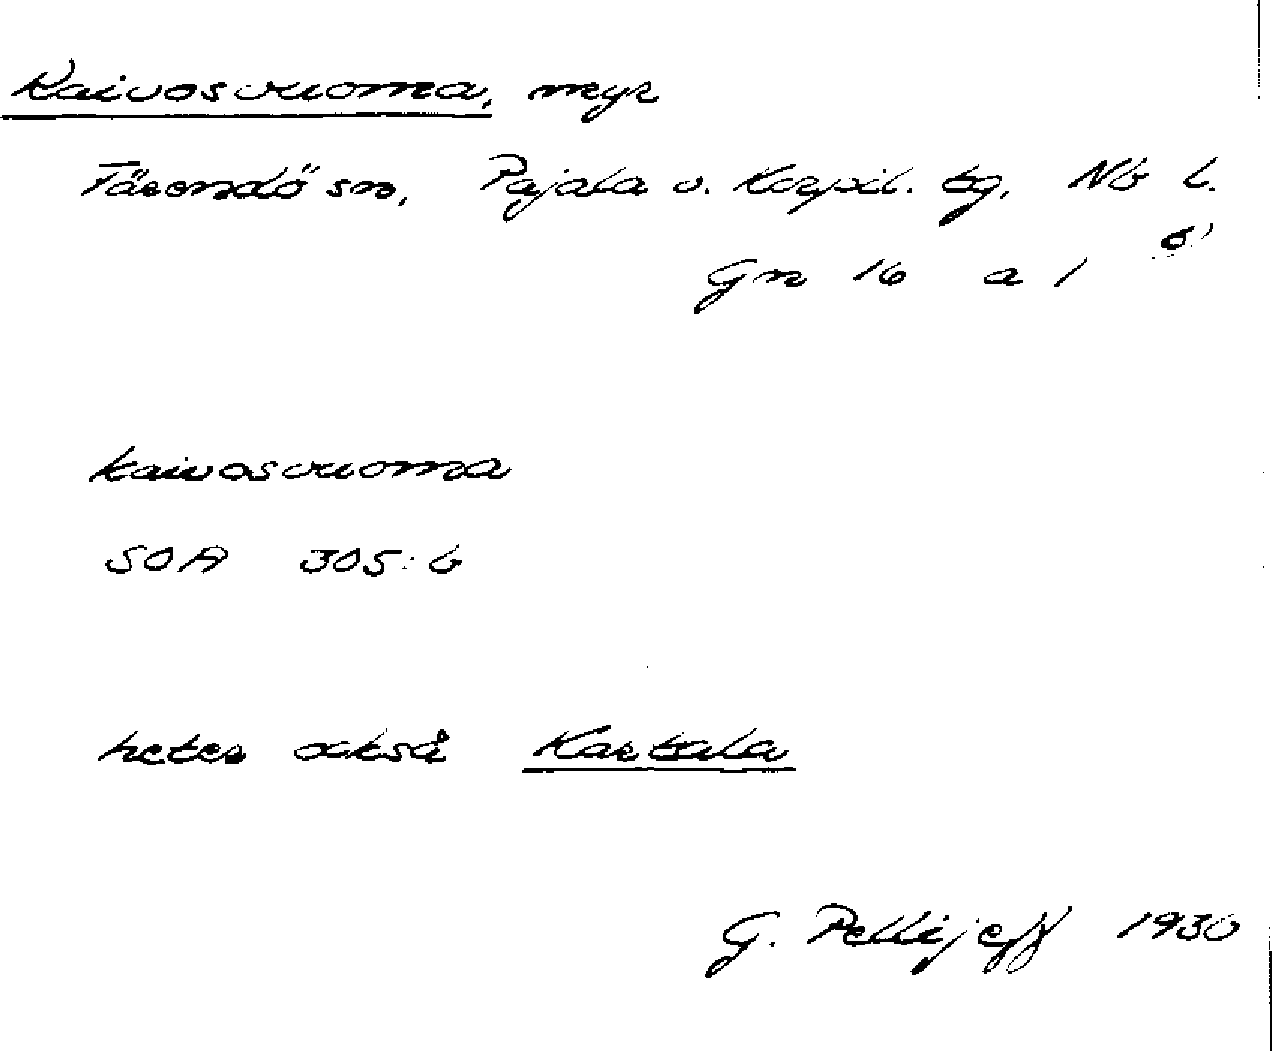 Kaivosvuoma, myr
Tärendö sn, Pajala o. Korpil. tg, Nb l.
Gn 16 a 1
kaivosvuoma
SOA 305:6
heter också Kartala
G. Pellijeff 1930